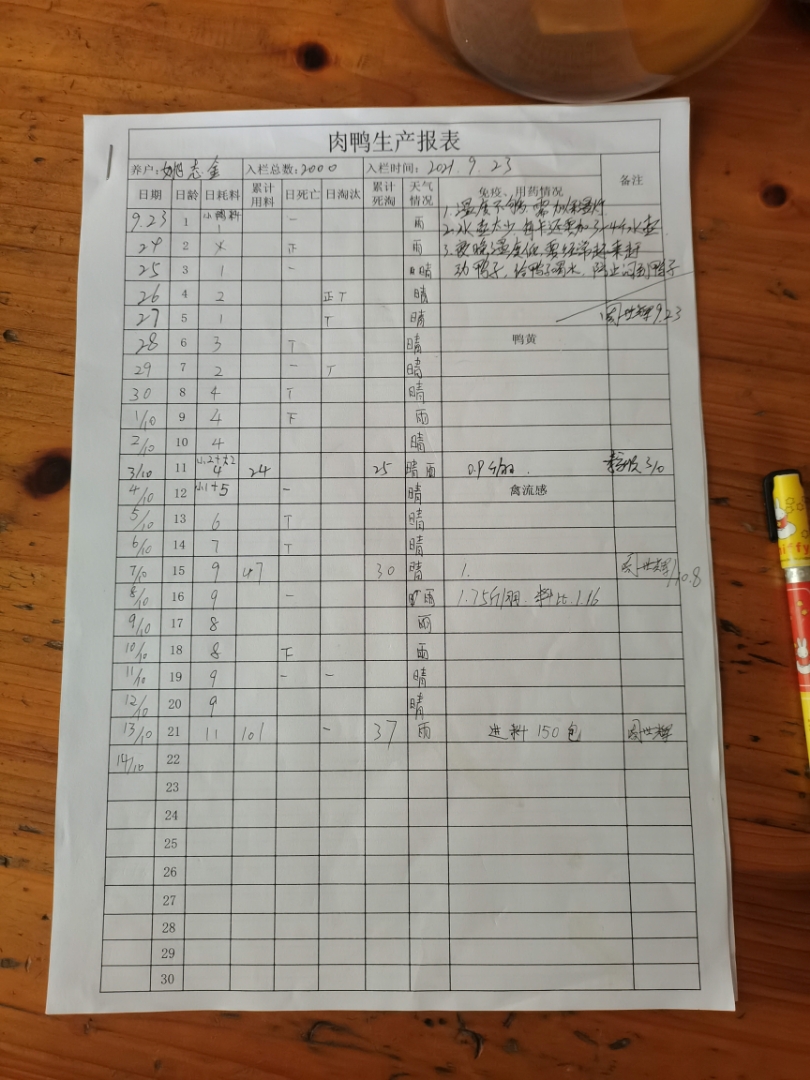 肉鸭生产报表
养户: 姚志金 入栏总数: 2000 入栏时间: 2021.9.23 备注
日期 日龄 日耗料 累计用料 日死亡 日淘汰 累计死淘 天气情况 免疫、用药情况
9.23 1 小鸭料 1 一 雨 1.温度不够,需加保温灯
24 2 正 雨 2.水壶太少,每栏还要加3-4个水壶
25 3 1 一 晴 3.夜晚温度低,要经常起来赶
动鸭子,给鸭子喝水,防止闷到鸭子
26 4 2 正丅 晴
27 5 1 丅 晴 周世辉9.23
28 6 3 丅 晴 鸭黄
29 7 2 一 丅 晴
30 8 4 丅 晴
1/10 9 4 下 雨
2/10 10 4 晴
3/10 11 小2+大2 4 24 25 晴 雨 0.9斤/羽. 3/10
4/10 12 小1+5 一 晴 禽流感
5/10 13 6 丅 晴
6/10 14 7 丅 晴
7/10 15 9 47 30 晴 1. 周世辉 10.8
8/10 16 9 一 雨 1.75斤/羽. 料比1.16
9/10 17 8 雨
10/10 18 8 下 雨
11/10 19 9 一 一 晴
12/10 20 9 晴
13/10 21 11 101 一 37 雨 进料150包 周世辉
14/10 22
23
24
25
26
27
28
29
30